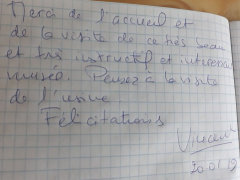 Merci de l'accueil et
de la visite de ce très beau
et très instructif et intéressant
musée. Pensez à la visite
de l'usine.
Félicitations
Vincent
20.01.19